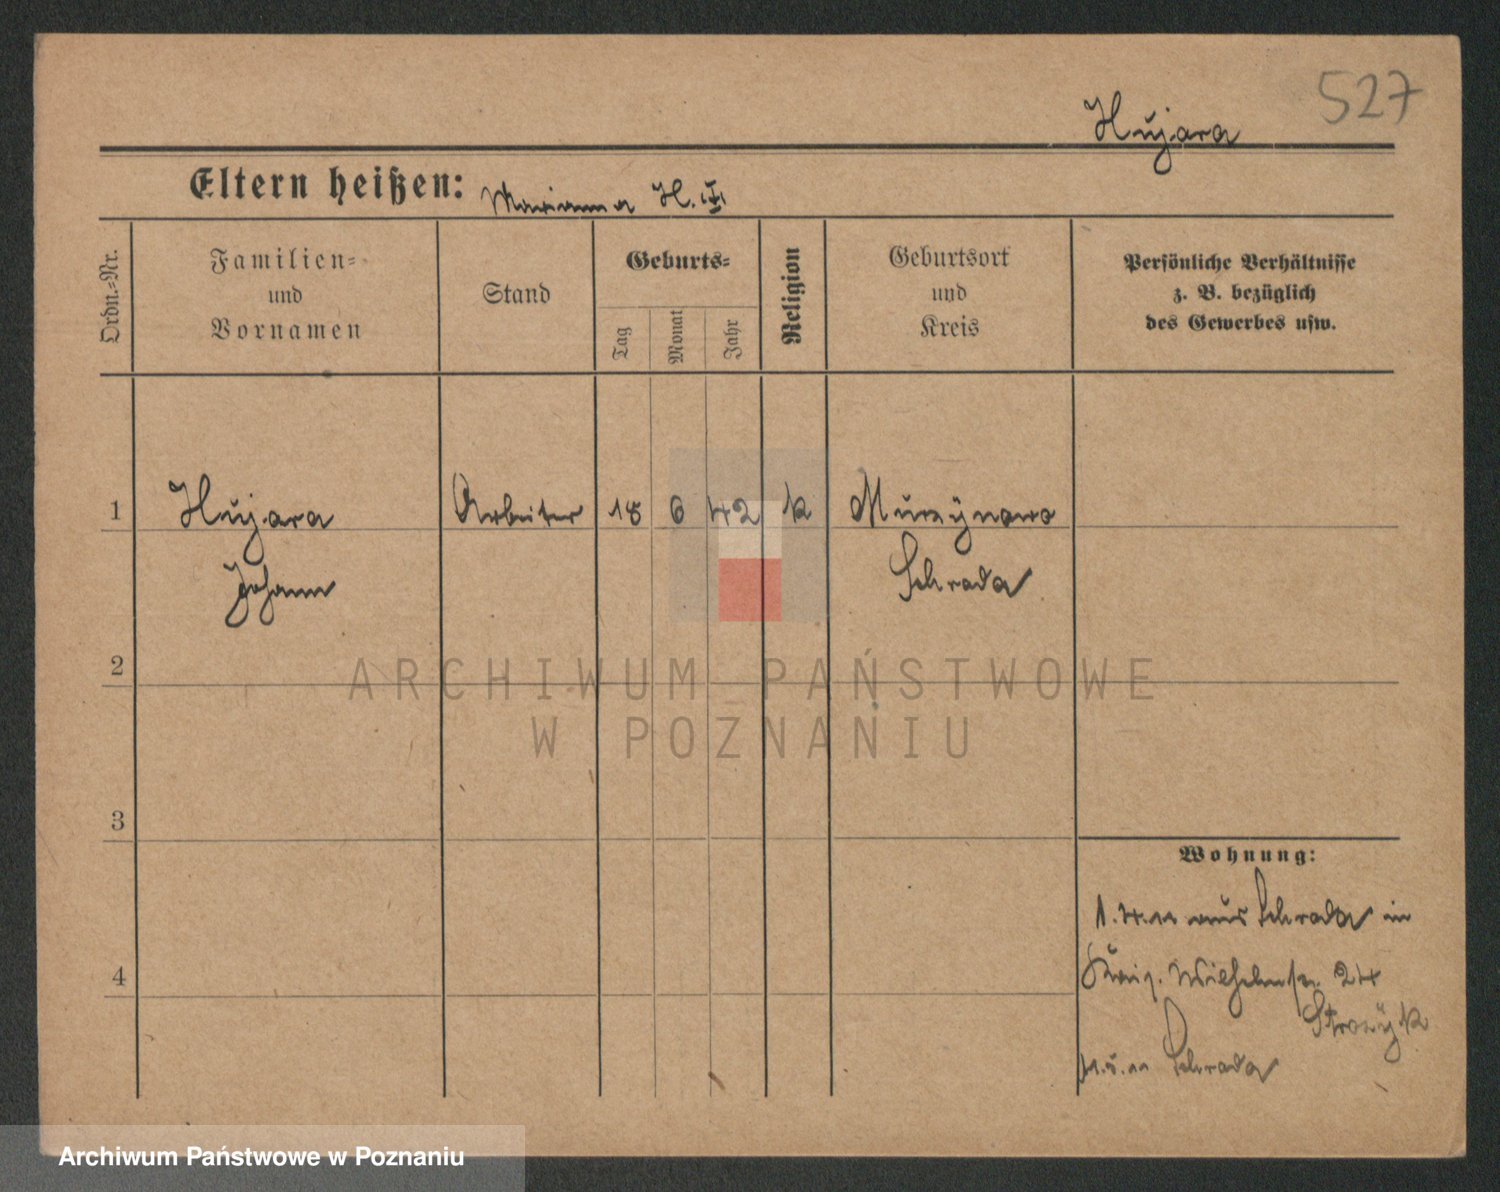 527
Hujara
Eltern heißen: Marianna H. III
Ordn.-Nr.
Familien-
und
Vornamen
Stand
Geburts-
Tag
Monat
Jahr
Religion
Geburtsort
und
Kreis
Persönliche Verhältnisse
z. B. bezüglich
des Gewerbes usw.
1 Hujara Arbeiter 18 6 42 k Murzÿnowo
Johann Schroda
2
ARCHIWUM PAŃSTWOWE
W POZNANIU
3
Wohnung:
1.4.11 aus Schroda in
Wilhelmstr. 24
4
Schroda
Archiwum Państwowe w Poznaniu